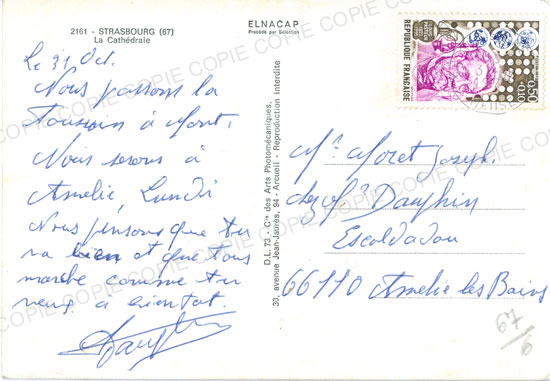 2161 - STRASBOURG (67)
La Cathédrale
ELNACAP
Procédé par Sélection
Le 31 Oct.
Nous passons la
Toussain à Mont.
Nous serons à
Amélie, Lundi
Nous pensons que tu
va bien et que tous
marche comme tu
veux à bientot.
D.L. 73 - Cie des Arts Photomécaniques,
30, avenue Jean-Jaurès, 94 - Arcueil - Reproduction interdite
REPUBLIQUE FRANÇAISE
0,50
+0,10
Mr Moret Joseph.
chez Mr Dauphin
Escoldadou
66110 Amélie les Bains
67/6
COPIE COPIE COPIE COPIE COPIE COPIE